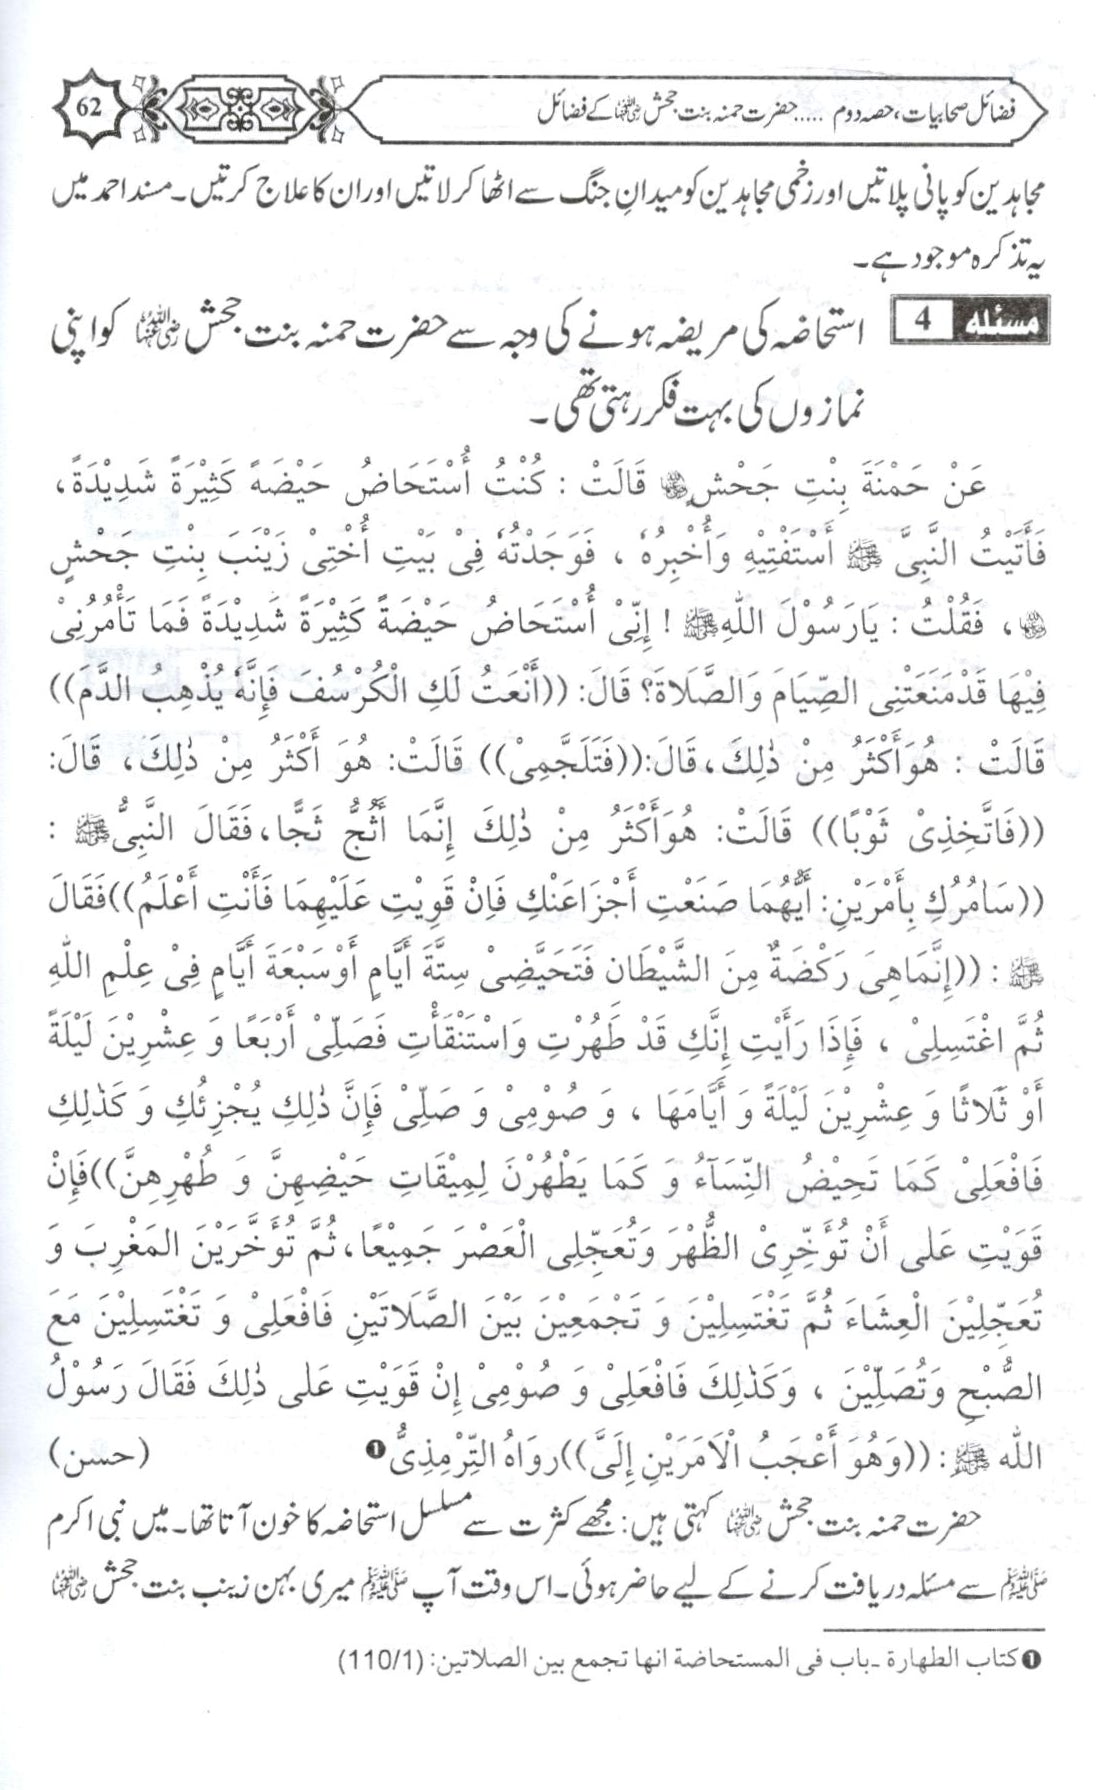 فضائل صحابیات، حصہ دوم ..... حضرت حمنہ بنت جحش رضی اللہ عنہا کے فضائل
62
مجاہدین کو پانی پلاتیں اور زخمی مجاہدین کو میدانِ جنگ سے اٹھا کر لاتیں اور ان کا علاج کرتیں۔ مسند احمد میں
یہ تذکرہ موجود ہے۔
مسئلہ 4 استحاضہ کی مریضہ ہونے کی وجہ سے حضرت حمنہ بنت جحش رضی اللہ عنہا کو اپنی
نمازوں کی بہت فکر رہتی تھی۔
عَنْ حَمْنَةَ بِنْتِ جَحْشٍ رضی اللہ عنہا قَالَتْ : كُنْتُ أُسْتَحَاضُ حَيْضَةً كَثِيْرَةً شَدِيْدَةً،
فَأَتَيْتُ النَّبِىَّ ﷺ أَسْتَفْتِيْهِ وَأُخْبِرُهٗ ، فَوَجَدْتُهٗ فِىْ بَيْتِ أُخْتِىْ زَيْنَبَ بِنْتِ جَحْشٍ
رضی اللہ عنہا ، فَقُلْتُ : يَارَسُوْلَ اللهِ ﷺ ! إِنِّىْ أُسْتَحَاضُ حَيْضَةً كَثِيْرَةً شَدِيْدَةً فَمَا تَأْمُرُنِىْ
فِيْهَا قَدْ مَنَعَتْنِى الصِّيَامَ وَالصَّلَاةَ؟ قَالَ: ((أَنْعَتُ لَكِ الْكُرْسُفَ فَإِنَّهٗ يُذْهِبُ الدَّمَ))
قَالَتْ : هُوَ أَكْثَرُ مِنْ ذٰلِكَ، قَالَ:((فَتَلَجَّمِىْ)) قَالَتْ: هُوَ أَكْثَرُ مِنْ ذٰلِكَ، قَالَ:
((فَاتَّخِذِىْ ثَوْبًا)) قَالَتْ: هُوَ أَكْثَرُ مِنْ ذٰلِكَ إِنَّمَا أَثُجُّ ثَجًّا، فَقَالَ النَّبِىُّ ﷺ :
((سَاٰمُرُكِ بِأَمْرَيْنِ: أَيُّهُمَا صَنَعْتِ أَجْزَاَ عَنْكِ فَاِنْ قَوِيْتِ عَلَيْهِمَا فَأَنْتِ أَعْلَمُ)) فَقَالَ
ﷺ : ((إِنَّمَا هِىَ رَكْضَةٌ مِنَ الشَّيْطَانِ فَتَحَيَّضِىْ سِتَّةَ أَيَّامٍ أَوْ سَبْعَةَ أَيَّامٍ فِىْ عِلْمِ اللهِ
ثُمَّ اغْتَسِلِىْ ، فَإِذَا رَأَيْتِ إِنَّكِ قَدْ طَهُرْتِ وَاسْتَنْقَأْتِ فَصَلِّىْ أَرْبَعًا وَ عِشْرِيْنَ لَيْلَةً
أَوْ ثَلَاثًا وَ عِشْرِيْنَ لَيْلَةً وَ أَيَّامَهَا ، وَ صُوْمِىْ وَ صَلِّىْ فَإِنَّ ذٰلِكِ يُجْزِئُكِ وَ كَذٰلِكِ
فَافْعَلِىْ كَمَا تَحِيْضُ النِّسَآءُ وَ كَمَا يَطْهُرْنَ لِمِيْقَاتِ حَيْضِهِنَّ وَ طُهْرِهِنَّ)) فَإِنْ
قَوَيْتِ عَلٰى أَنْ تُؤَخِّرِىْ الظُّهْرَ وَتُعَجِّلِى الْعَصْرَ جَمِيْعًا، ثُمَّ تُؤَخَّرَيْنَ المَغْرِبَ وَ
تُعَجِّلِيْنَ الْعِشَاءَ ثُمَّ تَغْتَسِلِيْنَ وَ تَجْمَعِيْنَ بَيْنَ الصَّلَاتَيْنِ فَافْعَلِىْ وَ تَغْتَسِلِيْنَ مَعَ
الصُّبْحِ وَتُصَلِّيْنَ ، وَكَذٰلِكَ فَافْعَلِىْ وَ صُوْمِىْ إِنْ قَوَيْتِ عَلٰى ذٰلِكَ فَقَالَ رَسُوْلُ
الله ﷺ : ((وَهُوَ أَعْجَبُ الْاَمَرَيْنِ إِلَىَّ)) روَاهُ التِّرْمِذِىُّ ❶ (حسن)
حضرت حمنہ بنت جحش رضی اللہ عنہا کہتی ہیں: مجھے کثرت سے مسلسل استحاضہ کا خون آتا تھا۔ میں نبی اکرم
ﷺ سے مسئلہ دریافت کرنے کے لیے حاضر ہوئی۔ اس وقت آپ ﷺ میری بہن زینب بنت جحش رضی اللہ عنہا
❶ کتاب الطهارة ۔باب فی المستحاضة انها تجمع بين الصلاتين: (110/1)